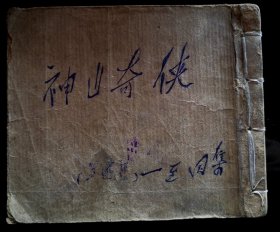 神山奇侠
一至四集